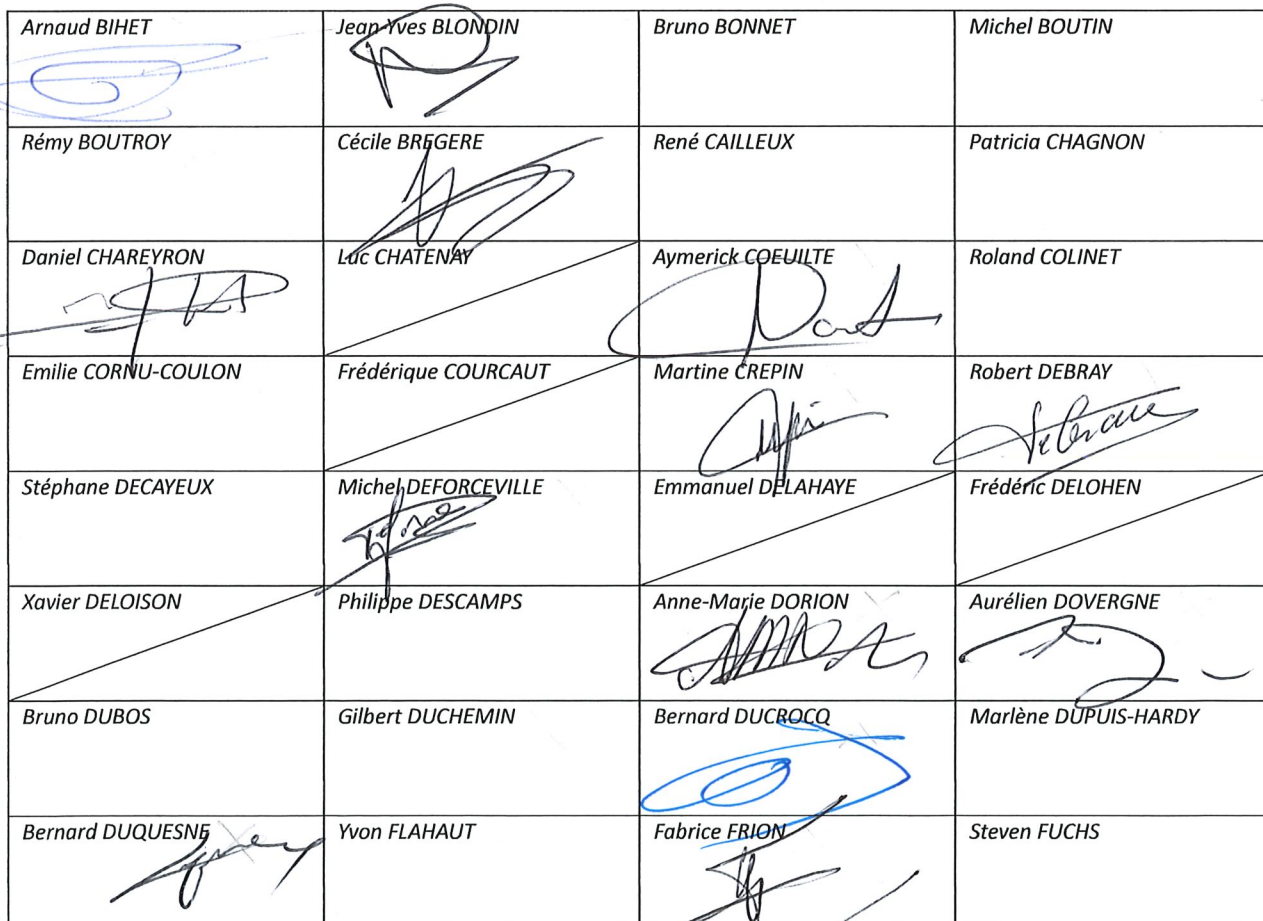 Arnaud BIHET
Jean-Yves BLONDIN
Bruno BONNET
Michel BOUTIN
Rémy BOUTROY
Cécile BREGERE
René CAILLEUX
Patricia CHAGNON
Daniel CHAREYRON
Luc CHATENAY
Aymerick COEUILTE
Roland COLINET
Emilie CORNU-COULON
Frédérique COURCAUT
Martine CREPIN
Robert DEBRAY
Stéphane DECAYEUX
Michel DEFORCEVILLE
Emmanuel DELAHAYE
Frédéric DELOHEN
Xavier DELOISON
Philippe DESCAMPS
Anne-Marie DORION
Aurélien DOVERGNE
Bruno DUBOS
Gilbert DUCHEMIN
Bernard DUCROCQ
Marlène DUPUIS-HARDY
Bernard DUQUESNE
Yvon FLAHAUT
Fabrice FRION
Steven FUCHS